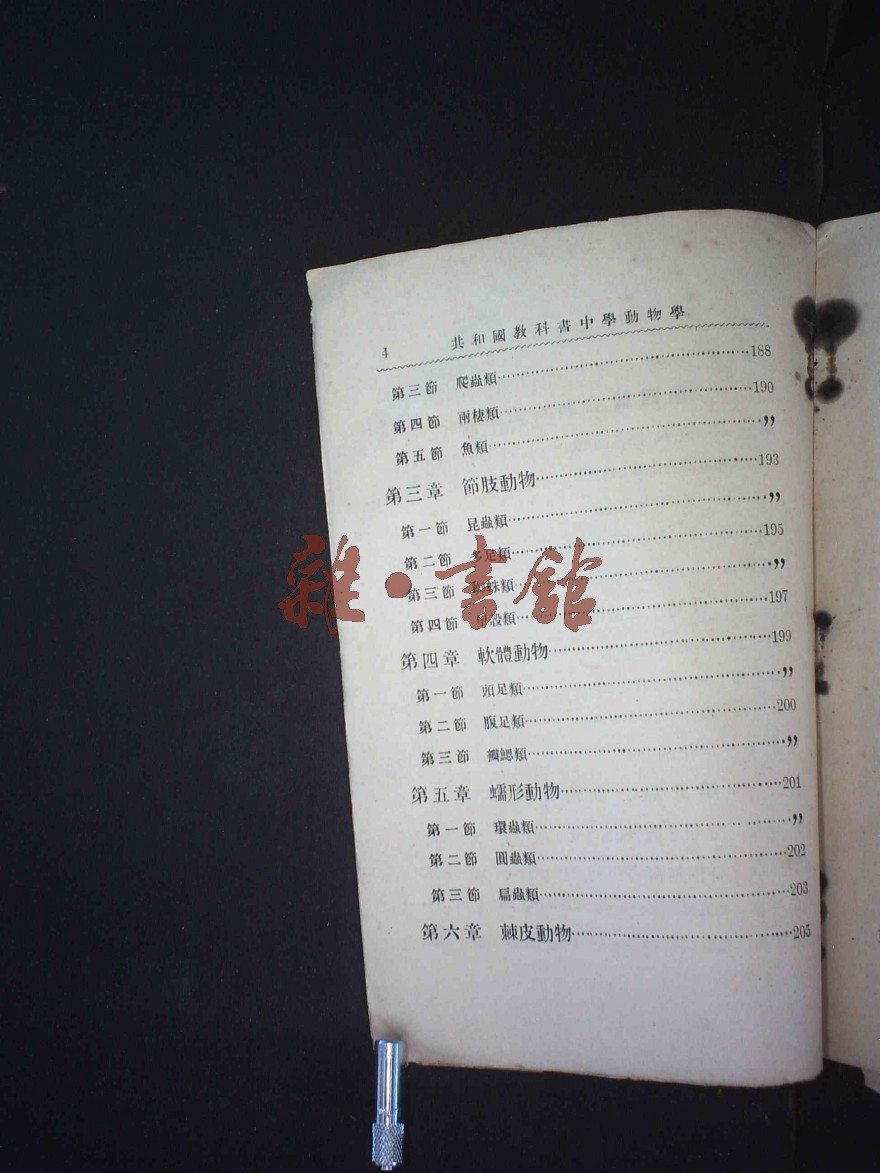 4 共和國教科書中學動物學
第三節 爬蟲類……188
第四節 兩棲類……190
第五節 魚類……”
第三章 節肢動物……193
第一節 昆蟲類……”
第二節 多足類……195
第三節 蜘蛛類……”
第四節 甲殼類……197
第四章 軟體動物……199
第一節 頭足類……”
第二節 腹足類……200
第三節 瓣鰓類……”
第五章 蠕形動物……201
第一節 環蟲類……”
第二節 圓蟲類……202
第三節 扁蟲類……203
第六章 棘皮動物……205
雜·書館